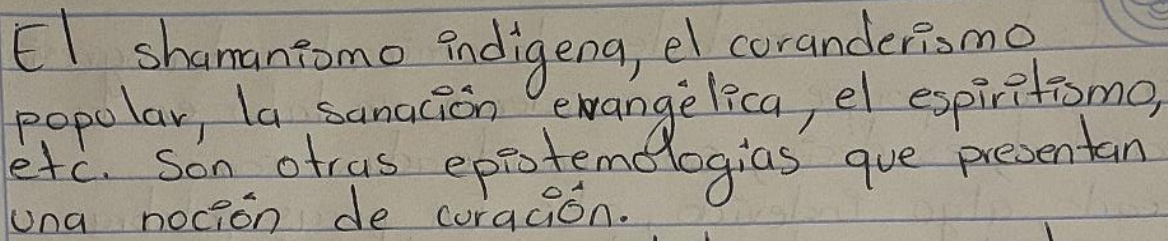 El shamanismo indígena, el curanderismo
popular, la sanación evangélica, el espiritismo,
etc. Son otras epistemologias que presentan
una noción de curación.